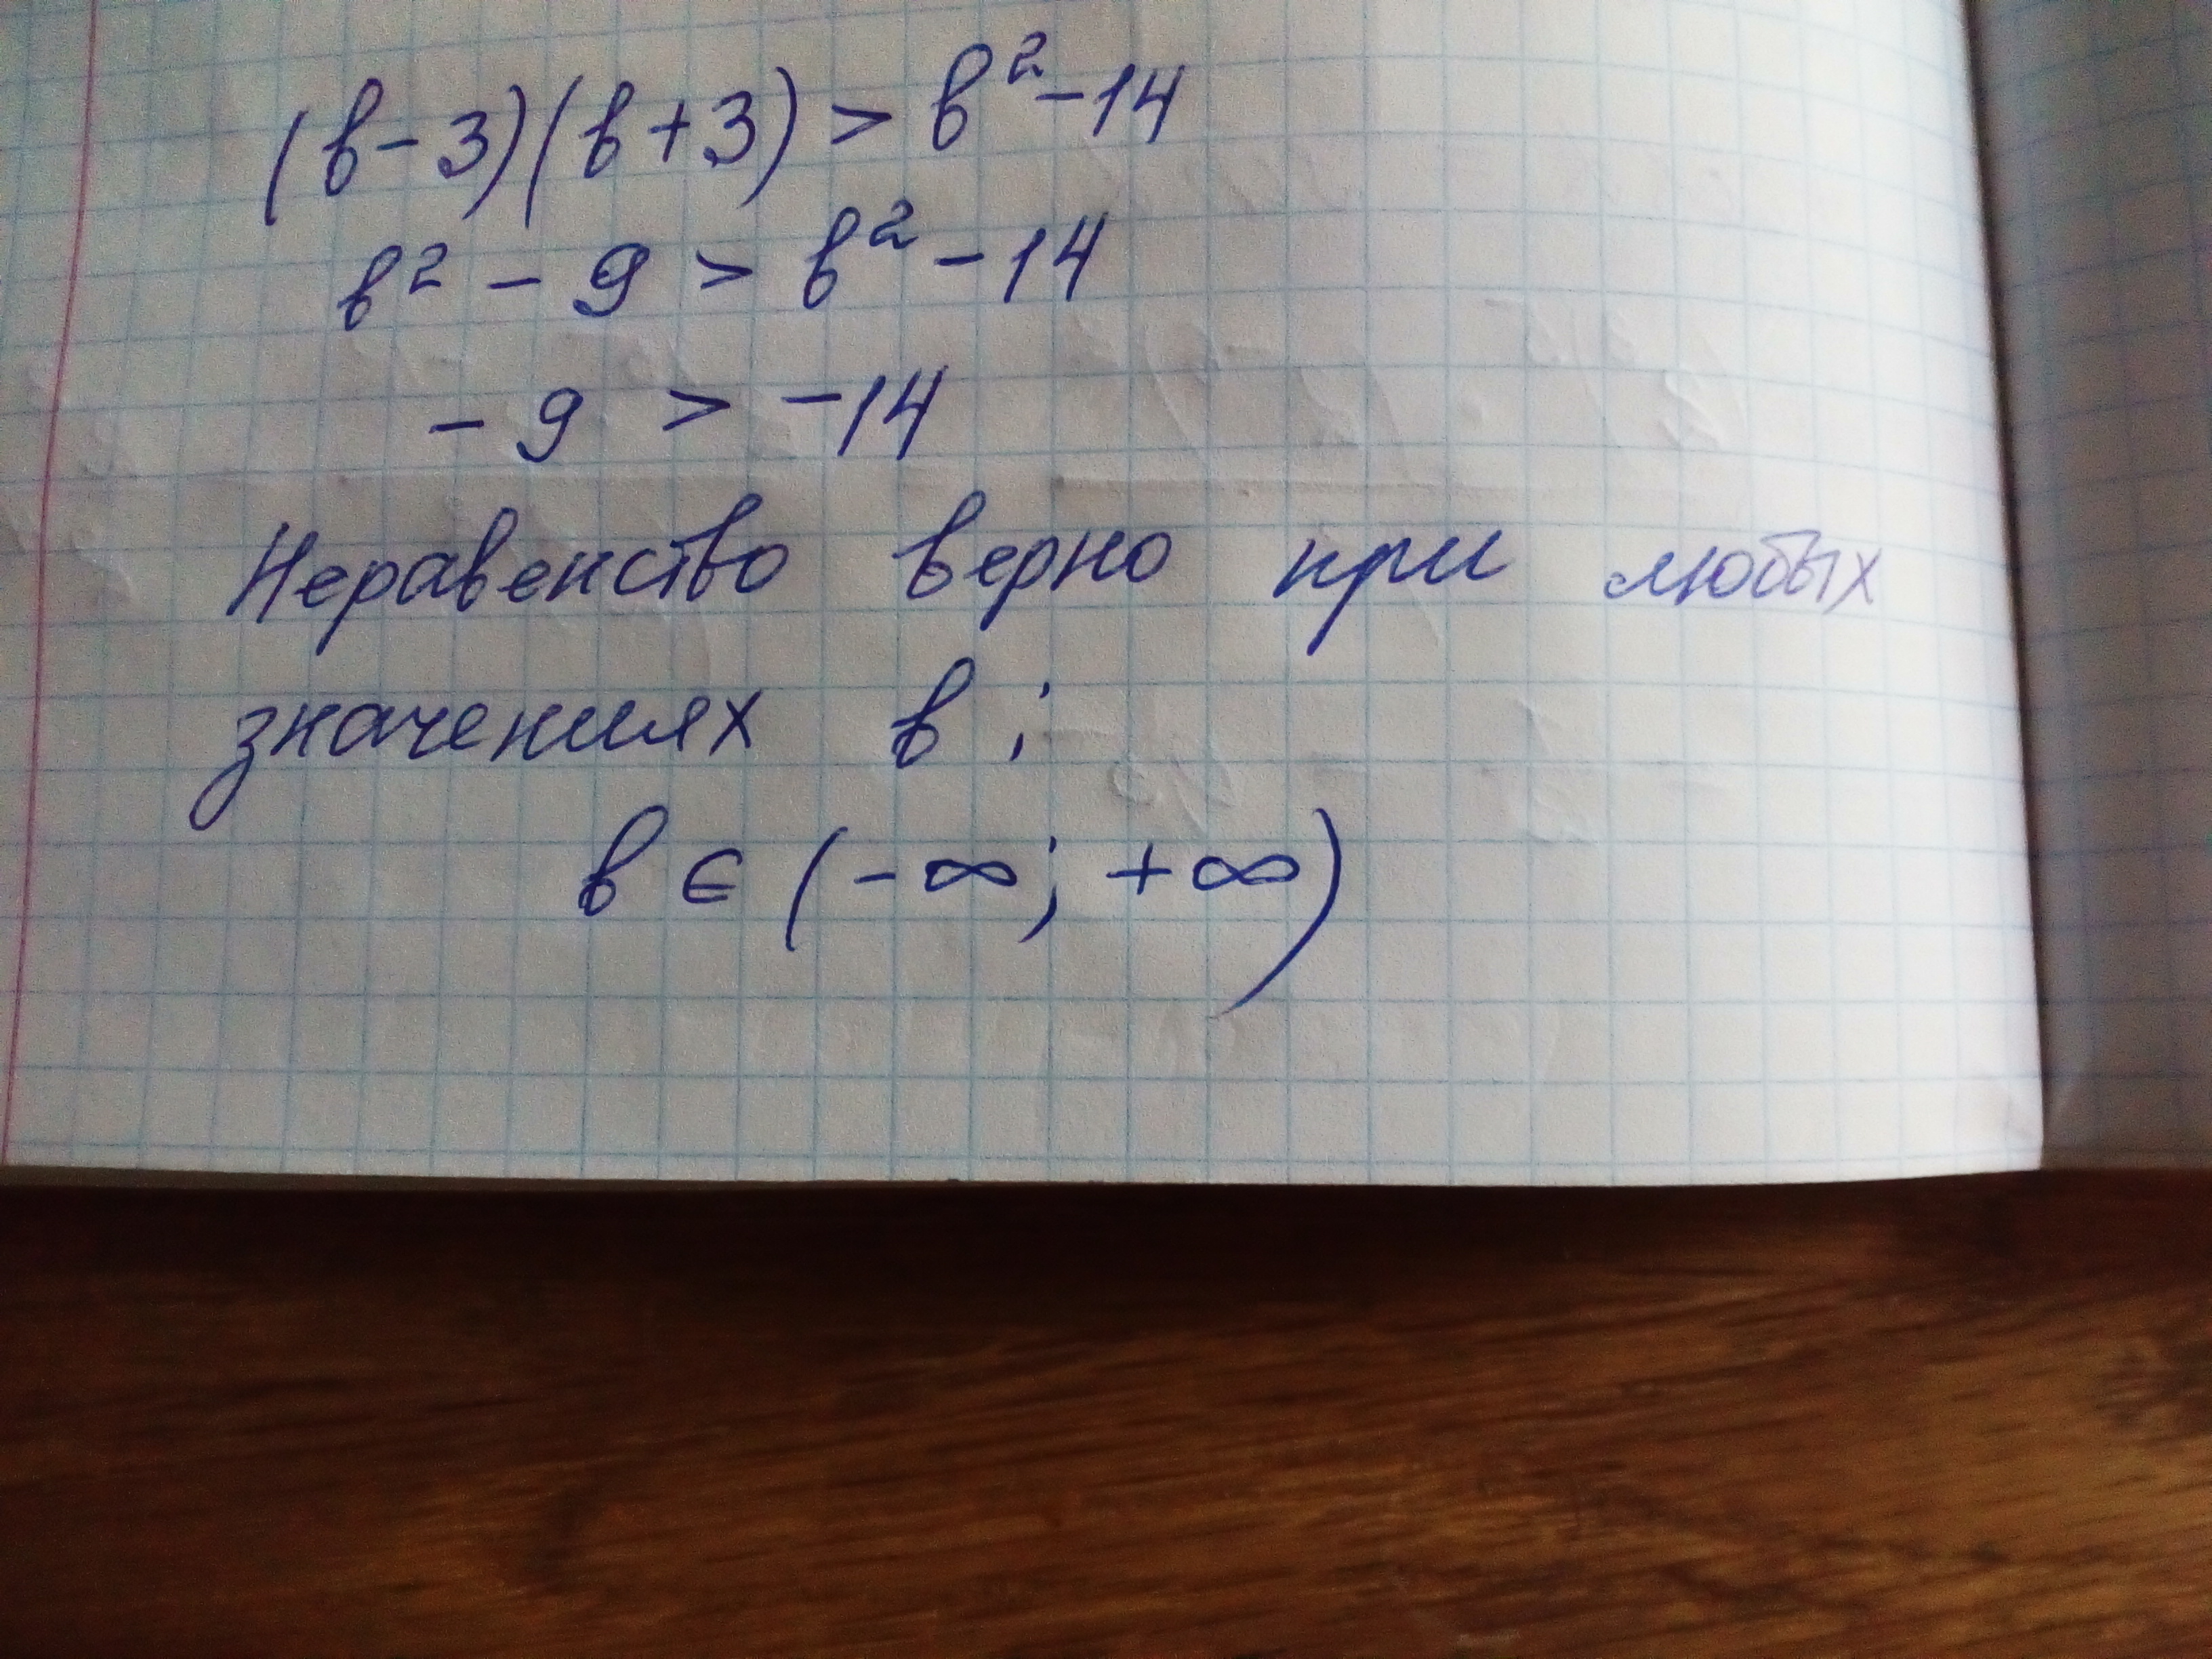 (в-3)(в+3) > в²-14
в² - 9 > в² - 14
- 9 > -14
Неравенство верно при любых
значениях в ;
в ∈ (-∞; +∞)